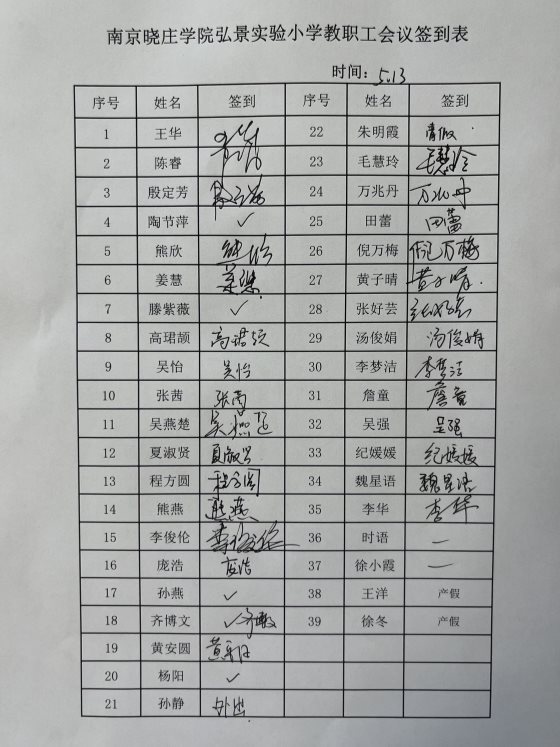 南京晓庄学院弘景实验小学教职工会议签到表
时间：5.13
序号 姓名 签到 序号 姓名 签到
1 王华 22 朱明霞 请假
2 陈睿 23 毛慧玲 毛慧玲
3 殷定芳 24 万兆丹 万兆丹
4 陶节萍 ✓ 25 田蕾 田蕾
5 熊欣 熊欣 26 倪万梅 倪万梅
6 姜慧 姜慧 27 黄子晴 黄子晴
7 滕紫薇 ✓ 28 张好芸 张好芸
8 高珺颉 高珺颉 29 汤俊娟 汤俊娟
9 吴怡 吴怡 30 李梦洁 李梦洁
10 张茜 张茜 31 詹童 詹童
11 吴燕楚 吴燕楚 32 吴强 吴强
12 夏淑贤 夏淑贤 33 纪媛媛 纪媛媛
13 程方圆 程方圆 34 魏星语 魏星语
14 熊燕 熊燕 35 李华 李华
15 李俊伦 36 时语 一
16 庞浩 庞浩 37 徐小霞 一
17 孙燕 ✓ 38 王洋 产假
18 齐博文 ✓ 39 徐冬 产假
19 黄安圆
20 杨阳 ✓
21 孙静 外出